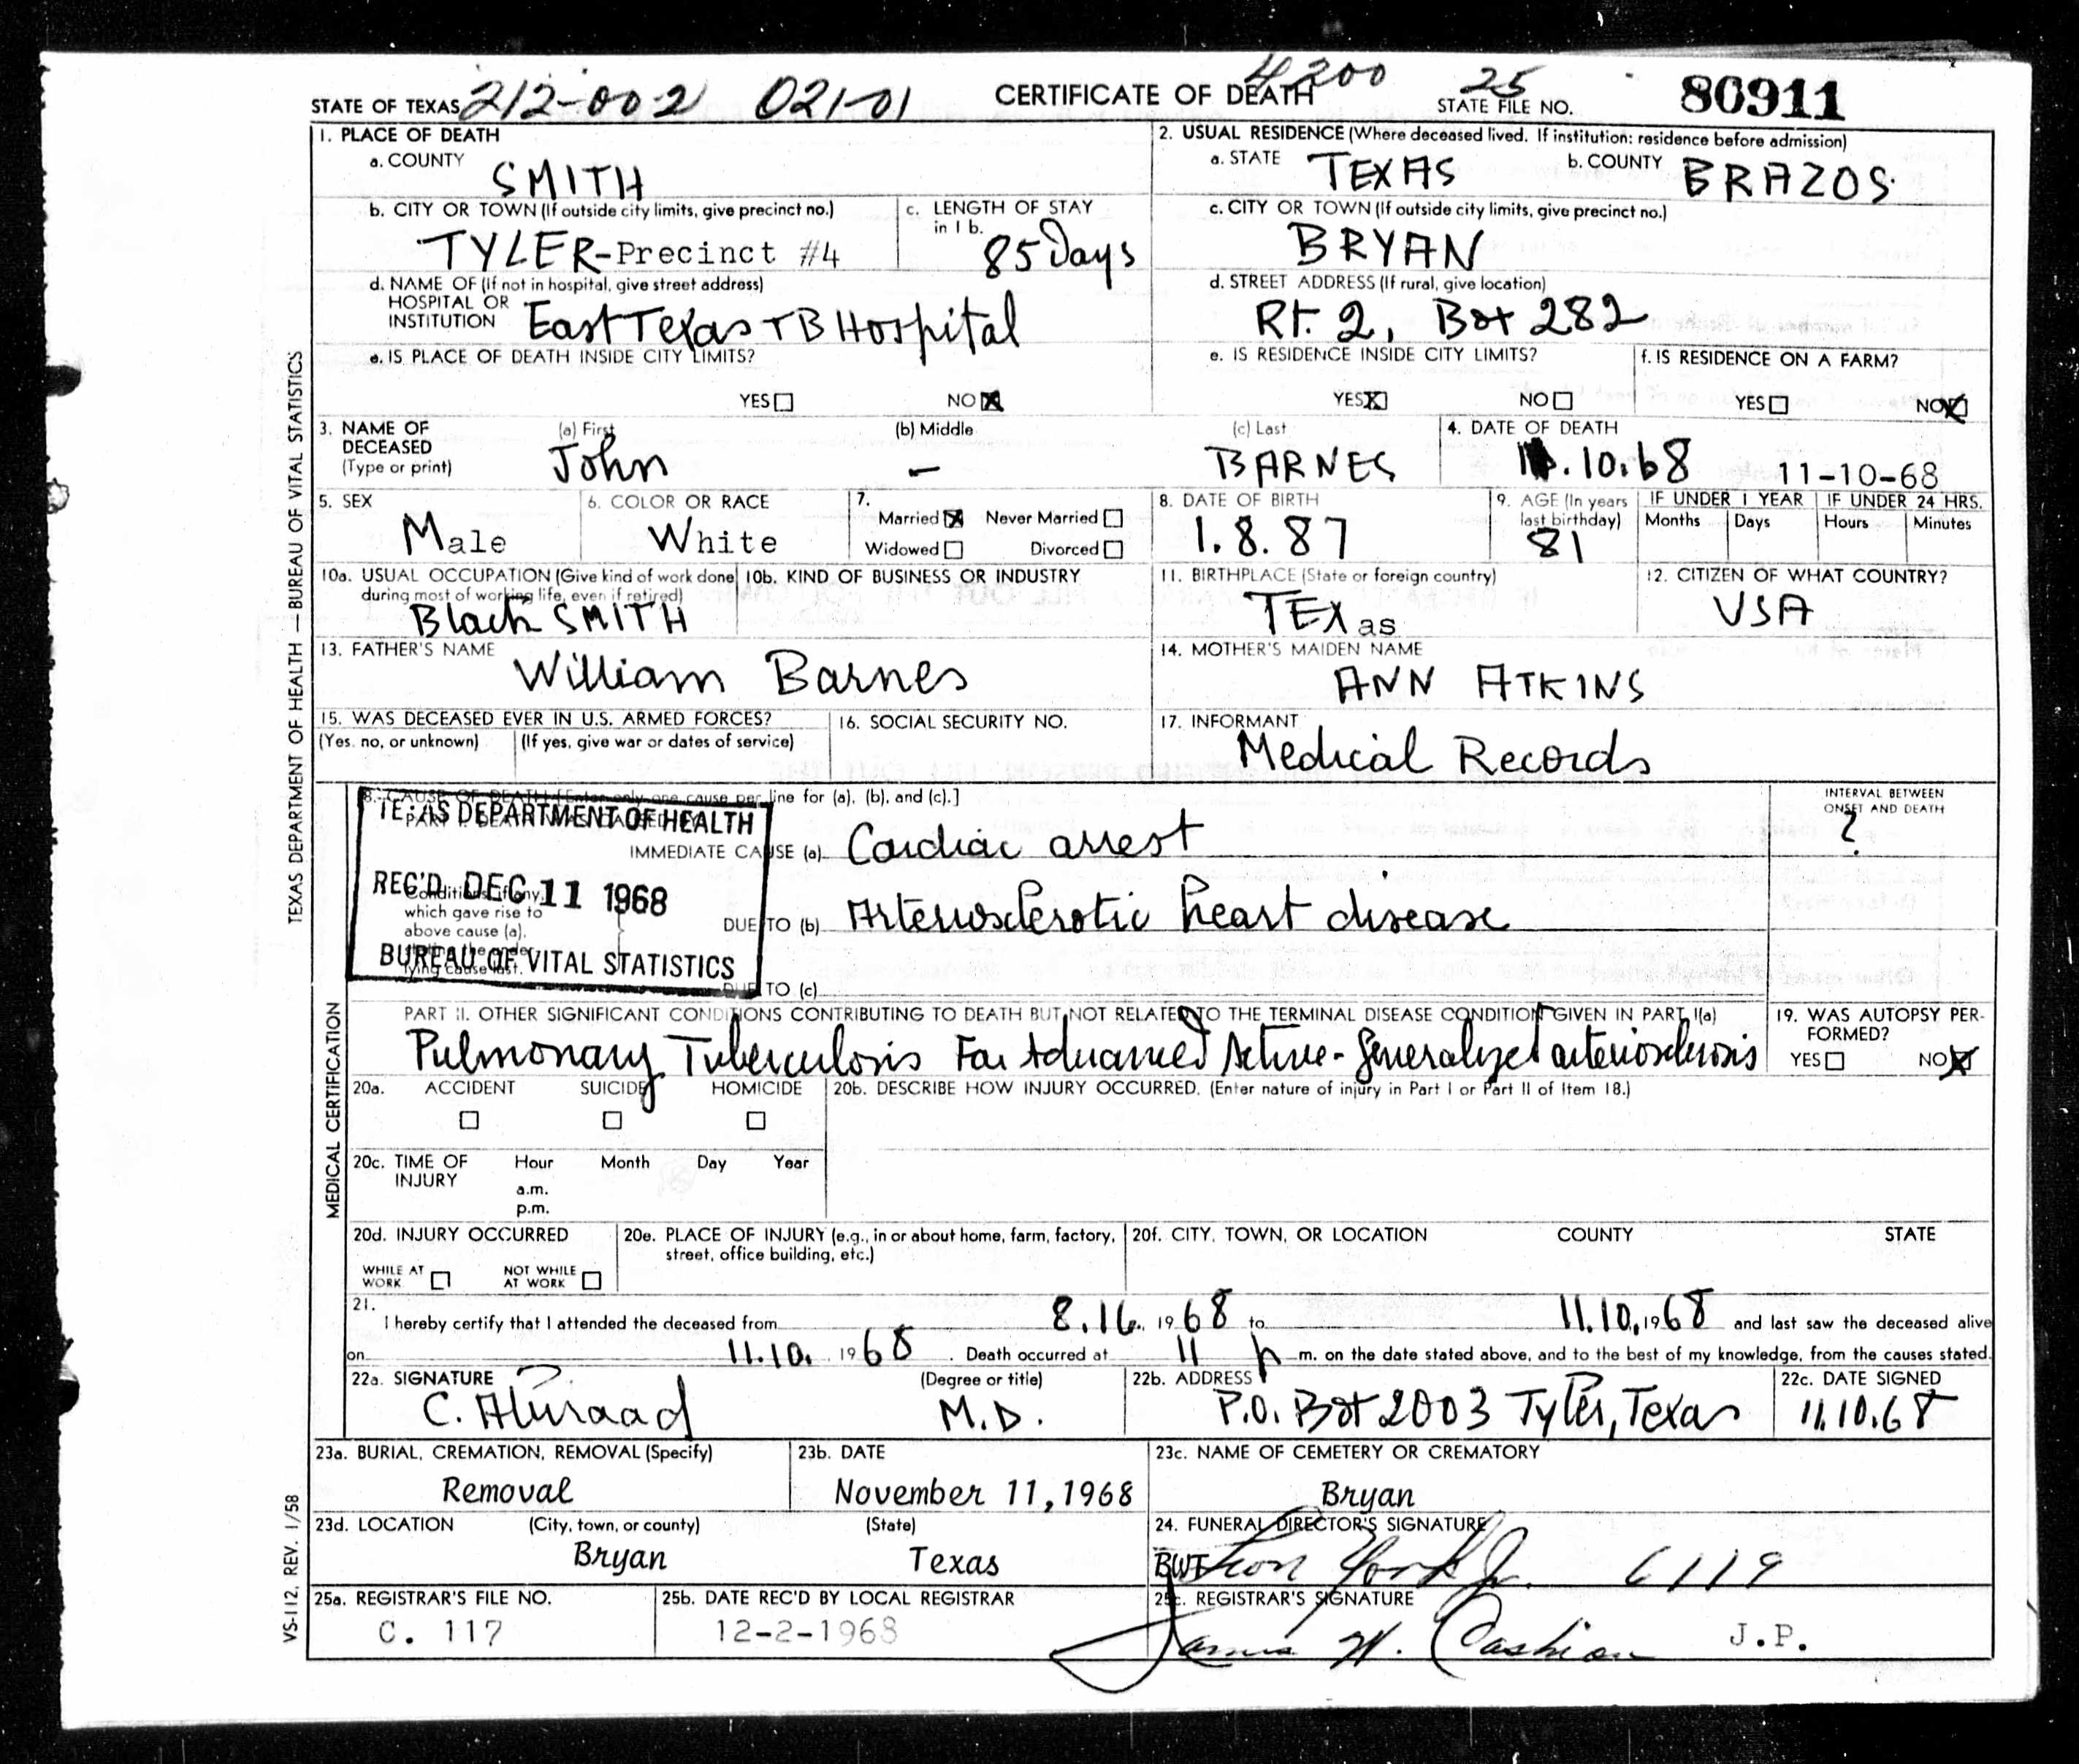 STATE OF TEXAS 212-002 021-01 CERTIFICATE OF DEATH 4200 25 STATE FILE NO. 80911
1. PLACE OF DEATH
a. COUNTY SMITH
b. CITY OR TOWN (If outside city limits, give precinct no.)
TYLER-Precinct #4
c. LENGTH OF STAY in 1 b.
85 Days
d. NAME OF (If not in hospital, give street address)
HOSPITAL OR INSTITUTION East Texas TB Hospital
e. IS PLACE OF DEATH INSIDE CITY LIMITS?
YES NO X
2. USUAL RESIDENCE (Where deceased lived. If institution: residence before admission)
a. STATE TEXAS b. COUNTY BRAZOS
c. CITY OR TOWN (If outside city limits, give precinct no.)
BRYAN
d. STREET ADDRESS (If rural, give location)
Rt. 2, Box 282
e. IS RESIDENCE INSIDE CITY LIMITS?
YES X NO
f. IS RESIDENCE ON A FARM?
YES NO X
3. NAME OF DECEASED (Type or print)
(a) First John
(b) Middle –
(c) Last BARNES
4. DATE OF DEATH
.10.68 11-10-68
5. SEX
Male
6. COLOR OR RACE
White
7.
Married X Never Married
Widowed Divorced
8. DATE OF BIRTH
1.8.87
9. AGE (In years last birthday)
81
IF UNDER 1 YEAR
Months Days
IF UNDER 24 HRS.
Hours Minutes
10a. USUAL OCCUPATION (Give kind of work done during most of working life, even if retired)
Black SMITH
10b. KIND OF BUSINESS OR INDUSTRY
11. BIRTHPLACE (State or foreign country)
TEXas
12. CITIZEN OF WHAT COUNTRY?
USA
13. FATHER'S NAME
William Barnes
14. MOTHER'S MAIDEN NAME
ANN ATKINS
15. WAS DECEASED EVER IN U.S. ARMED FORCES?
(Yes, no, or unknown) (If yes, give war or dates of service)
16. SOCIAL SECURITY NO.
17. INFORMANT
Medical Records
18. CAUSE OF DEATH [Enter only one cause per line for (a), (b), and (c).]
INTERVAL BETWEEN ONSET AND DEATH
TEXAS DEPARTMENT OF HEALTH
REC'D DEC 11 1968
BUREAU OF VITAL STATISTICS
IMMEDIATE CAUSE (a) Cardiac arrest ?
which gave rise to
above cause (a),
DUE TO (b) Arteriosclerotic heart disease
DUE TO (c)
PART II. OTHER SIGNIFICANT CONDITIONS CONTRIBUTING TO DEATH BUT NOT RELATED TO THE TERMINAL DISEASE CONDITION GIVEN IN PART I(a)
Pulmonary Tuberculosis Far Advanced Active - generalized arteriosclerosis
19. WAS AUTOPSY PERFORMED?
YES NO X
20a. ACCIDENT SUICIDE HOMICIDE
20b. DESCRIBE HOW INJURY OCCURRED. (Enter nature of injury in Part I or Part II of Item 18.)
20c. TIME OF INJURY Hour Month Day Year
a.m.
p.m.
20d. INJURY OCCURRED
WHILE AT WORK NOT WHILE AT WORK
20e. PLACE OF INJURY (e.g., in or about home, farm, factory, street, office building, etc.)
20f. CITY, TOWN, OR LOCATION COUNTY STATE
21.
I hereby certify that I attended the deceased from 8.16. 1968 to 11.10, 1968 and last saw the deceased alive
on 11.10. 1968. Death occurred at 11 p m. on the date stated above, and to the best of my knowledge, from the causes stated.
22a. SIGNATURE (Degree or title)
C. M.D.
22b. ADDRESS
P.O. Box 2003 Tyler, Texas
22c. DATE SIGNED
11.10.68
23a. BURIAL, CREMATION, REMOVAL (Specify)
Removal
23b. DATE
November 11, 1968
23c. NAME OF CEMETERY OR CREMATORY
Bryan
23d. LOCATION (City, town, or county) (State)
Bryan Texas
24. FUNERAL DIRECTOR'S SIGNATURE
BWT York Jr. 6119
25a. REGISTRAR'S FILE NO.
C. 117
25b. DATE REC'D BY LOCAL REGISTRAR
12-2-1968
25c. REGISTRAR'S SIGNATURE
James W. Cashion J.P.
TEXAS DEPARTMENT OF HEALTH — BUREAU OF VITAL STATISTICS
MEDICAL CERTIFICATION
VS-112, REV. 1/58